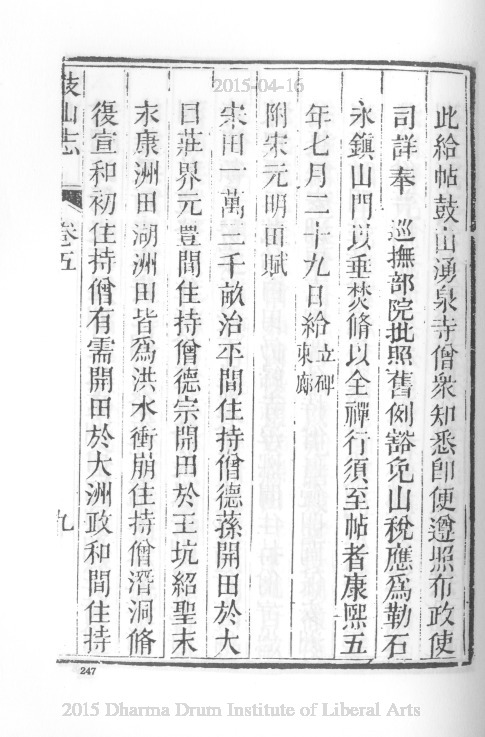 2015-04-16
此給帖鼓山湧泉寺僧衆知悉卽便遵照布政使
司詳奉 巡撫部院批照舊例豁免山稅應爲勒石
永鎮山門以垂焚脩以全禪行須至帖者康熙五
年七月二十九日給立碑東廊
附宋元明田賦
宋田一萬三千畝治平間住持僧德蓀開田於大
日莊界元豊間住持僧德宗開田於王坑紹聖末
末康洲田湖洲田皆爲洪水衝崩住持僧潛洞脩
復宣和初住持僧有需開田於大洲政和間住持
鼓山志 卷五 九
247
2015 Dharma Drum Institute of Liberal Arts